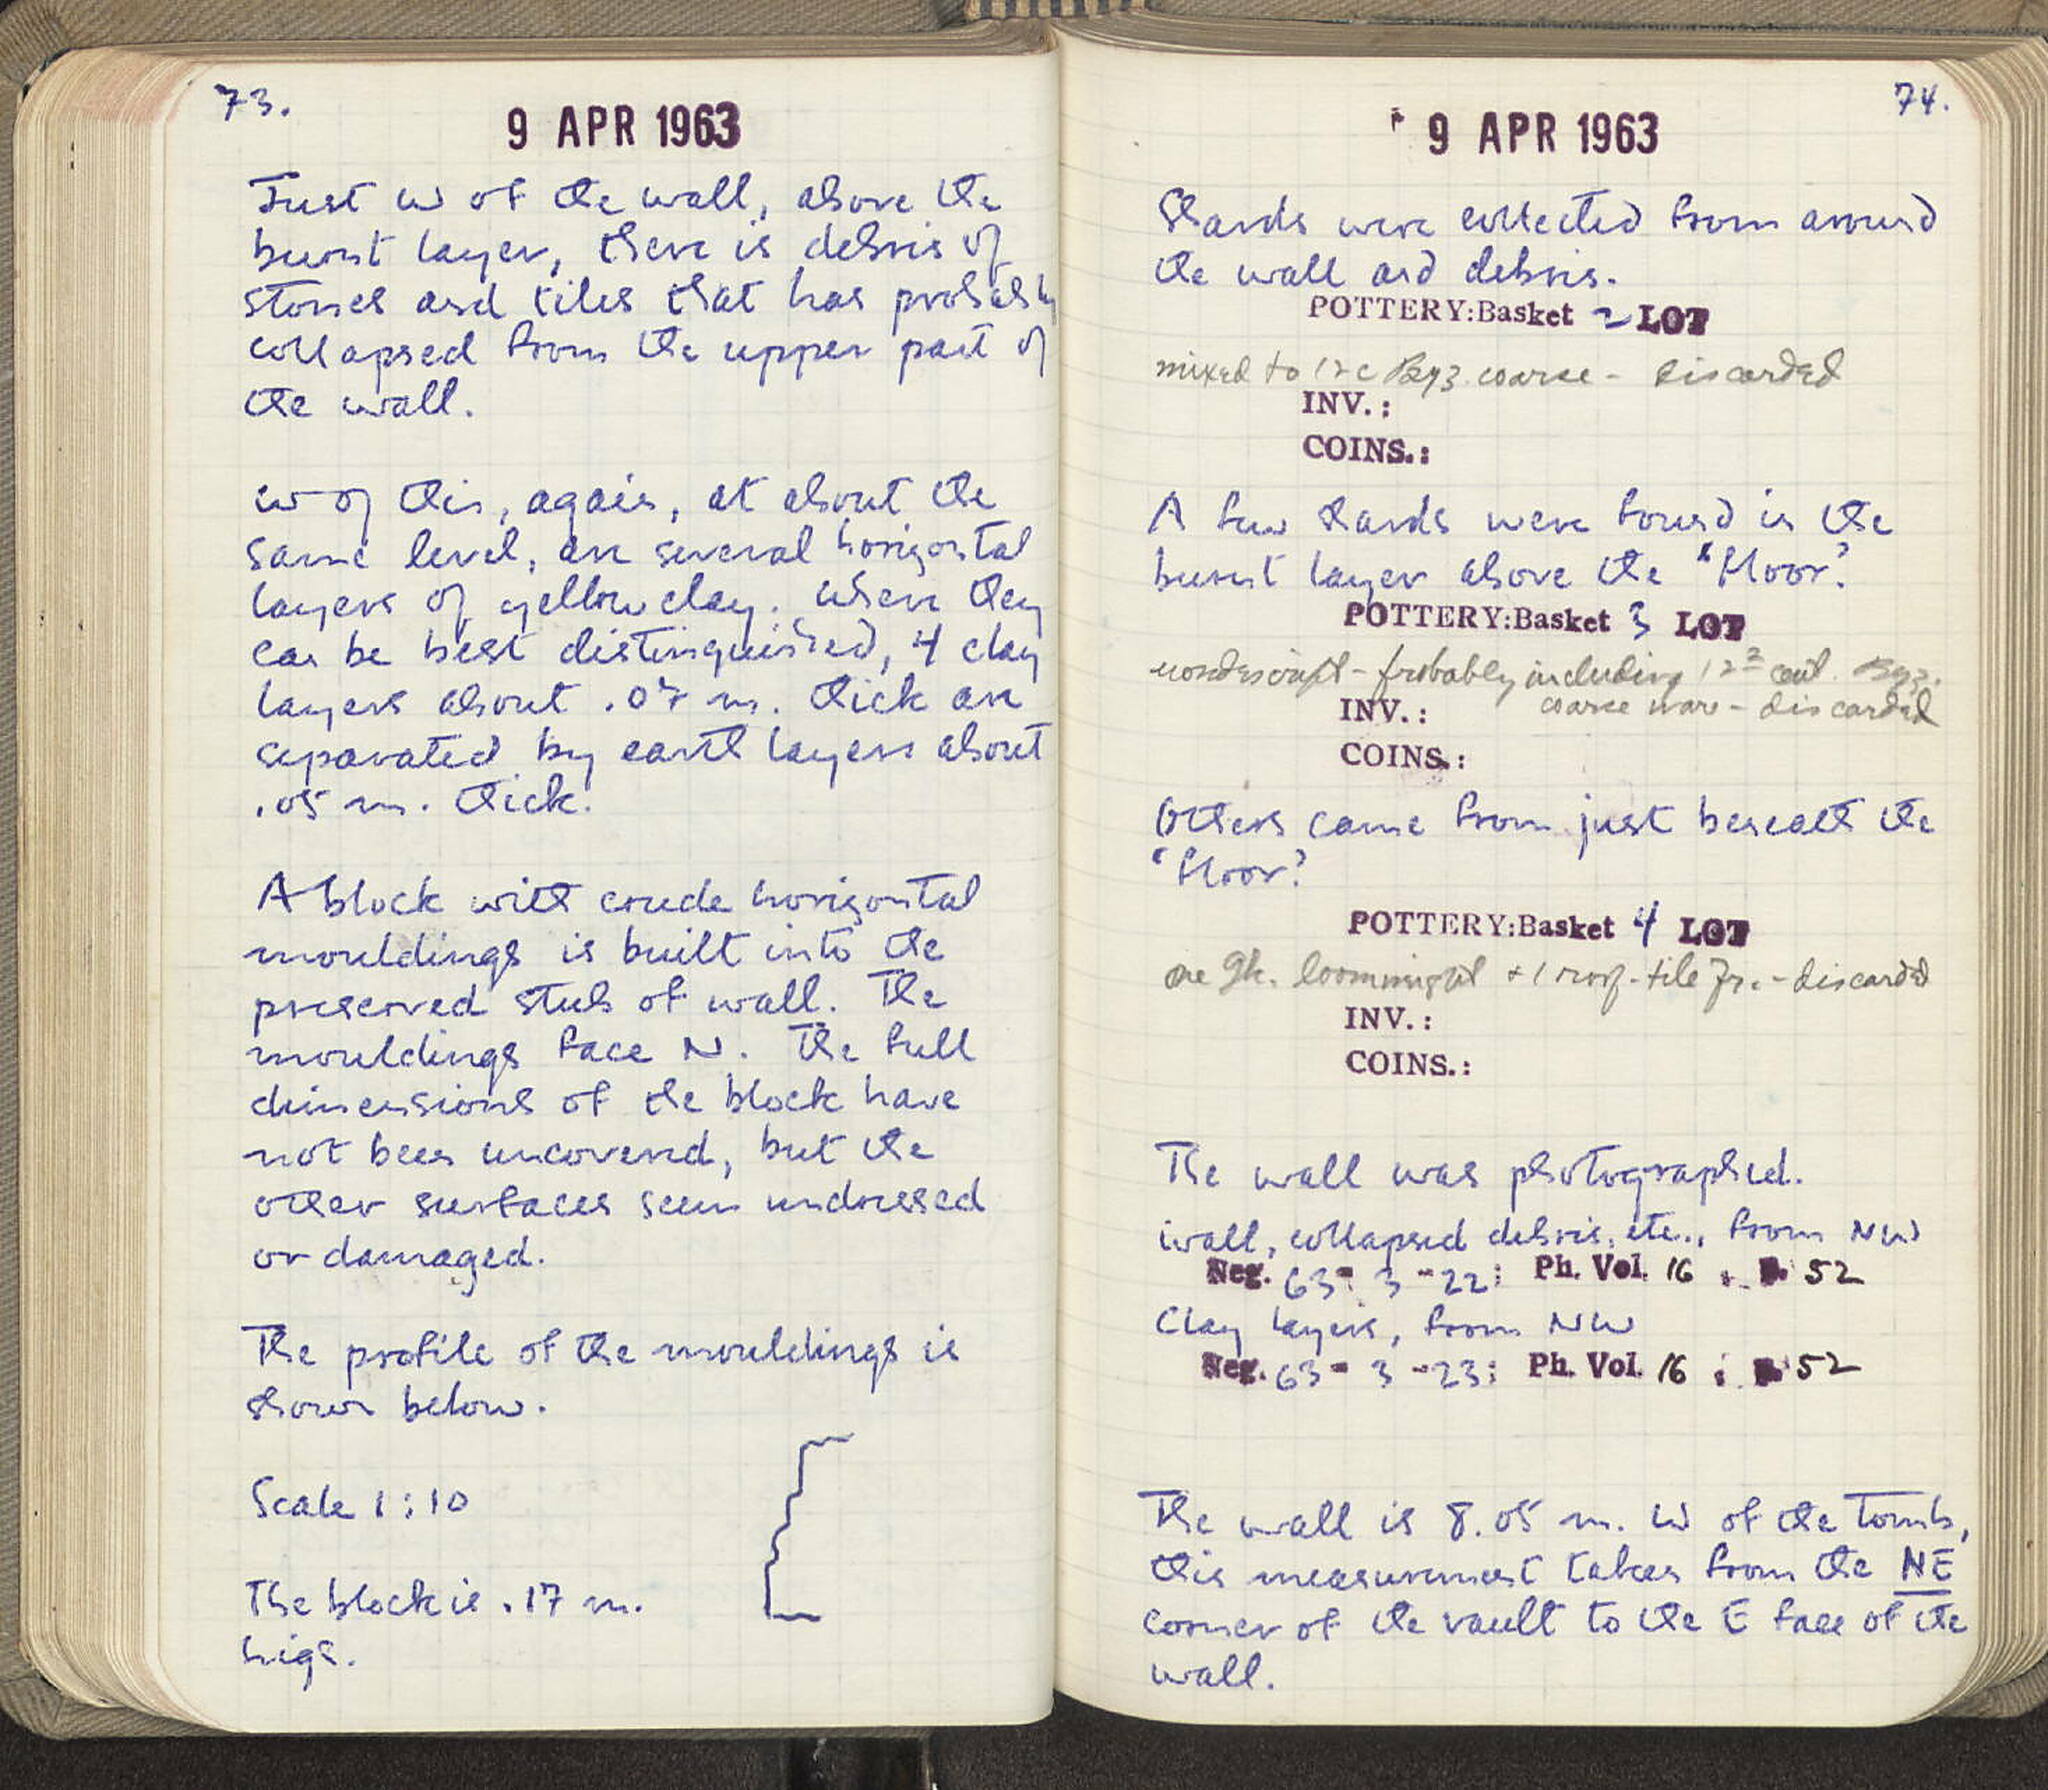 73.
9 APR 1963
Just W of the wall, above the
burnt layer, there is debris of
stones and tiles that has probably
collapsed from the upper part of
the wall.
W of this, again, at about the
same level, are several horizontal
layers of yellow clay. Where they
can be best distinguished, 4 clay
layers about .07 m. thick are
separated by earth layers about
.05 m. thick.
A block with crude horizontal
mouldings is built into the
preserved stub of wall. The
mouldings face N. The full
dimensions of the block have
not been uncovered, but the
other surfaces seem undressed
or damaged.
The profile of the mouldings is
shown below.
Scale 1:10
The block is .17 m.
high.
74.
9 APR 1963
Sherds were collected from around
the wall and debris.
POTTERY: Basket 2 LOT
mixed to 12c Byz. coarse - discarded
INV.:
COINS.:
A few sherds were found in the
burnt layer above the "floor".
POTTERY: Basket 3 LOT
nondescript - probably including 12th cent. Byz.
coarse ware - discarded
INV.:
COINS.:
Others came from just beneath the
"floor".
POTTERY: Basket 4 LOT
one Gk. loomweight + 1 roof-tile fr. - discarded
INV.:
COINS.:
The wall was photographed.
Wall, collapsed debris, etc., from NW
Neg. 63-3-22; Ph. Vol. 16, p. 52
Clay layers, from NW
Neg. 63-3-23; Ph. Vol. 16, p. 52
The wall is 8.05 m. W of the tomb,
this measurement taken from the NE
corner of the vault to the E face of the
wall.